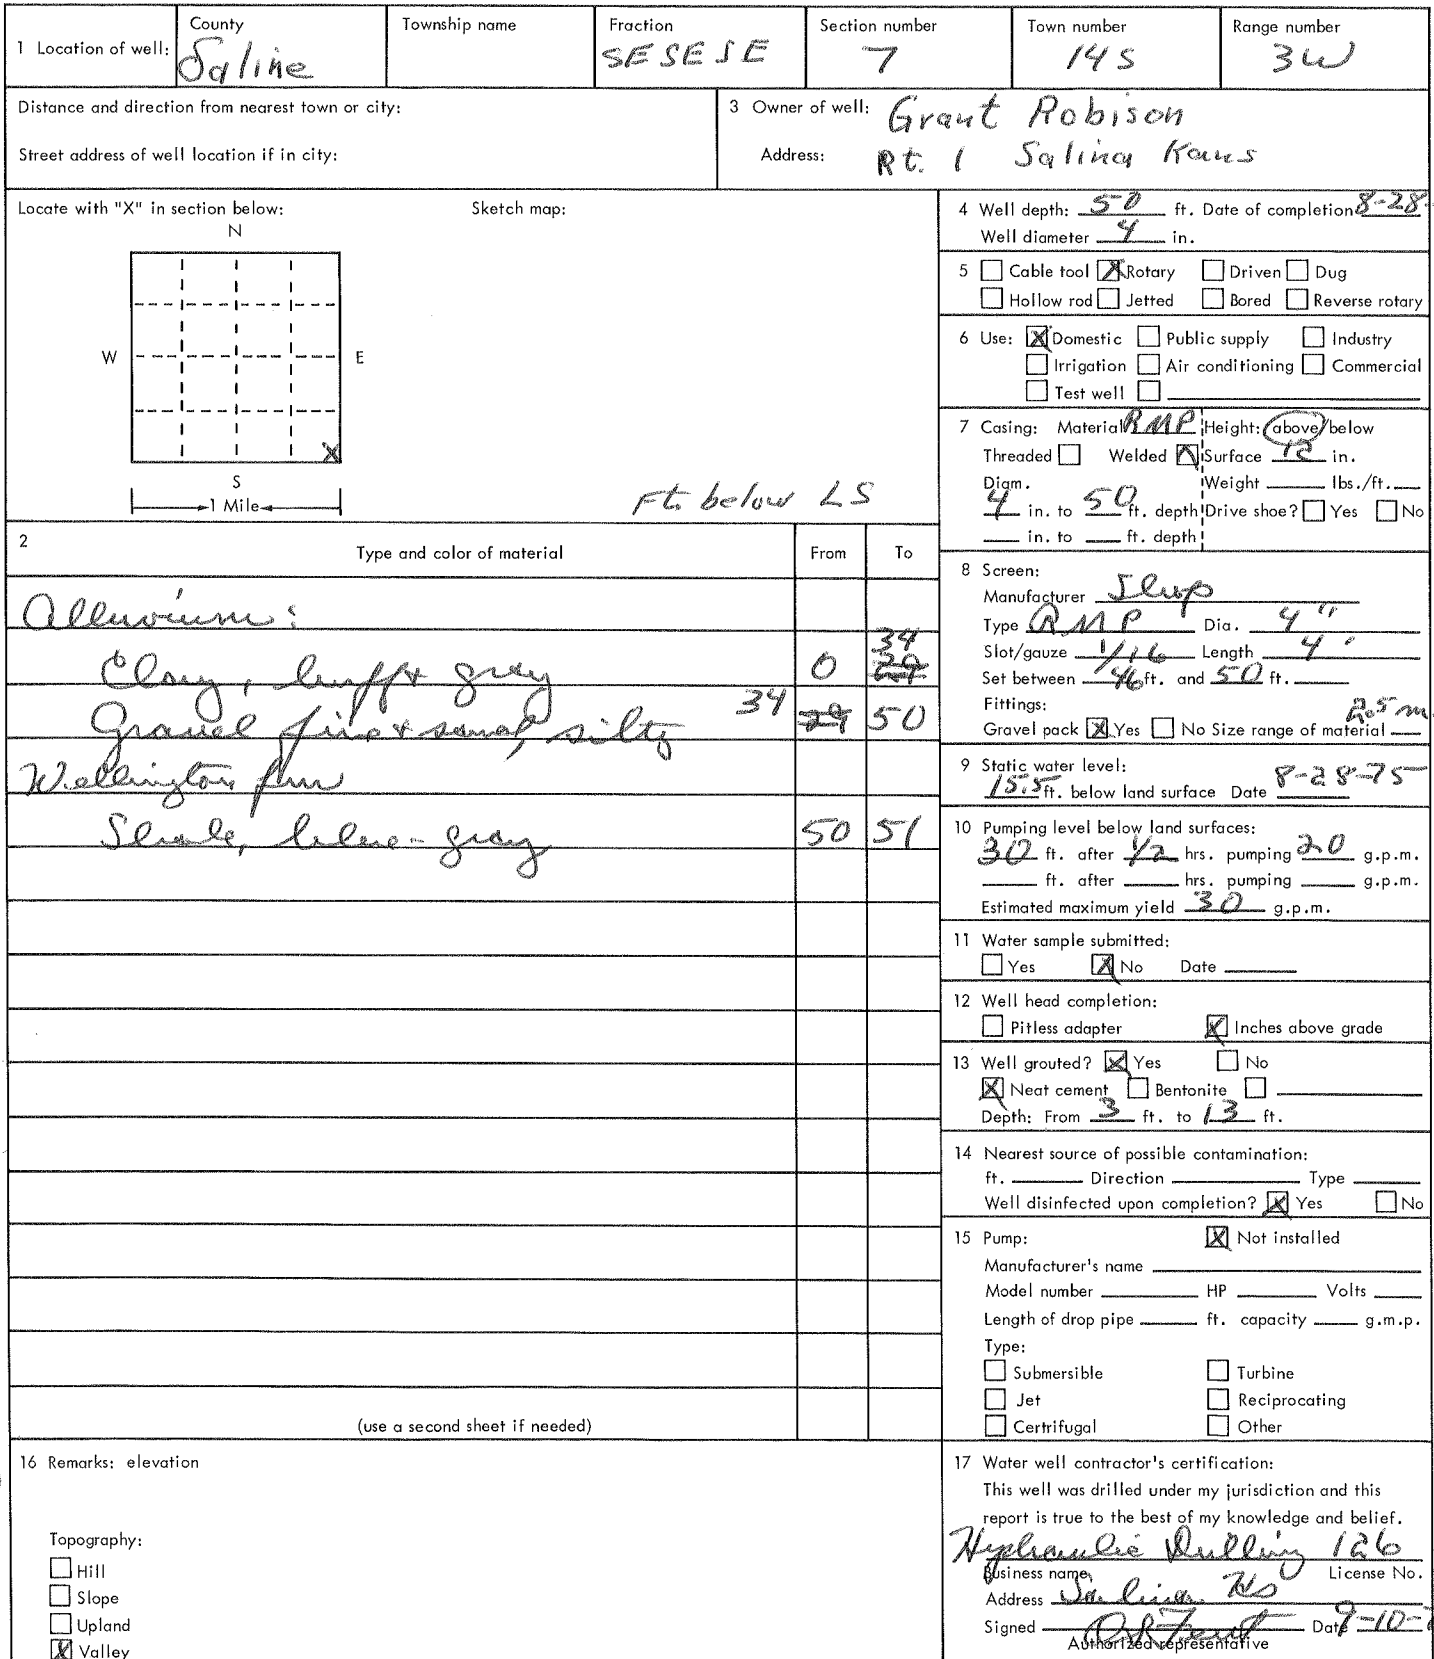 1 Location of well: County Saline Township name Fraction SE SE SE Section number 7 Town number 14 S Range number 3W
Distance and direction from nearest town or city:
Street address of well location if in city:
3 Owner of well: Grant Robison
Address: Rt. 1 Salina Kans
Locate with "X" in section below: Sketch map:
N
W E
X
S
1 Mile
Ft. below LS
2 Type and color of material From To
Alluvium:
34
Clay, buff & gray 0 29
Gravel fine & sand, silty 34 29 50
Wellington fm
Shale, blue-gray 50 51
(use a second sheet if needed)
4 Well depth: 50 ft. Date of completion 8-28-
Well diameter 4 in.
5 Cable tool X Rotary Driven Dug
Hollow rod Jetted Bored Reverse rotary
6 Use: X Domestic Public supply Industry
Irrigation Air conditioning Commercial
Test well
7 Casing: Material RMP Height: above/below
Threaded Welded Surface 12 in.
Diam. Weight lbs./ft.
4 in. to 50 ft. depth Drive shoe? Yes No
in. to ft. depth
8 Screen:
Manufacturer
Type RMP Dia. 4"
Slot/gauze 1/16 Length 4'
Set between 46 ft. and 50 ft.
Fittings:
Gravel pack X Yes No Size range of material
9 Static water level:
15.5 ft. below land surface Date 8-28-75
10 Pumping level below land surfaces:
30 ft. after 1/2 hrs. pumping 20 g.p.m.
ft. after hrs. pumping g.p.m.
Estimated maximum yield 30 g.p.m.
11 Water sample submitted:
Yes X No Date
12 Well head completion:
Pitless adapter X Inches above grade
13 Well grouted? X Yes No
X Neat cement Bentonite
Depth: From 3 ft. to 13 ft.
14 Nearest source of possible contamination:
ft. Direction Type
Well disinfected upon completion? X Yes No
15 Pump: X Not installed
Manufacturer's name
Model number HP Volts
Length of drop pipe ft. capacity g.m.p.
Type:
Submersible Turbine
Jet Reciprocating
Certrifugal Other
16 Remarks: elevation
Topography:
Hill
Slope
Upland
X Valley
17 Water well contractor's certification:
This well was drilled under my jurisdiction and this
report is true to the best of my knowledge and belief.
Hydraulic Drilling 126
Business name License No.
Address Salina Ks
Signed Date 9-10-
Authorized representative